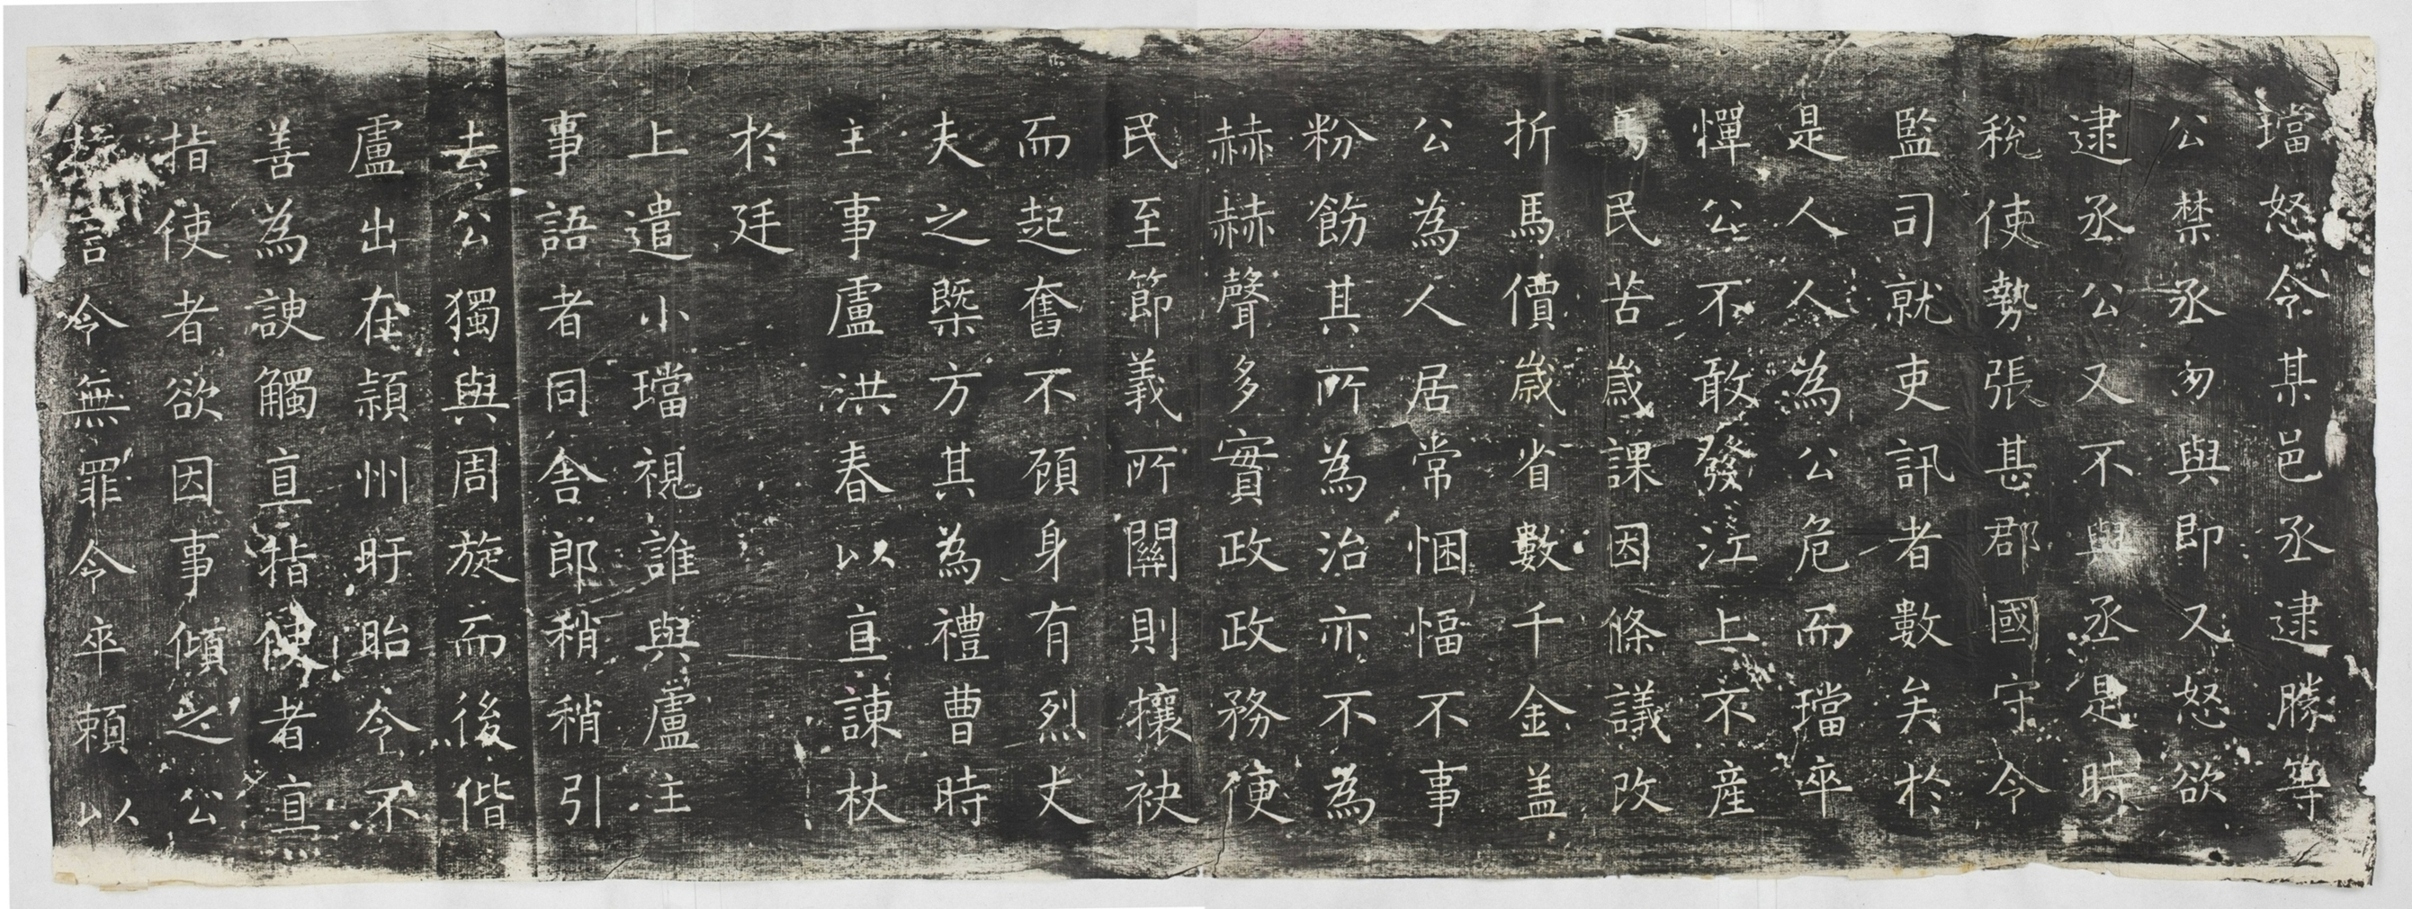 璫怒令某邑丞逮勝等
公禁丞勿與即又怒欲
逮丞公又不與丞是時
稅使勢張甚郡國守令
監司就吏訊者數矣於
是人人為公危而璫卒
憚公不敢發江上不産
馬民苦歲課因條議改
折馬價歲省數千金盖
公為人居常悃愊不事
粉飭其所為治亦不為
赫赫聲多實政政務便
民至節義所關則攘袂
而起奮不頋身有烈丈
夫之槩方其為禮曹時
主事盧洪春以直諫杖
於廷
上遣小璫視誰與盧主
事語者同舍郎稍稍引
去公獨與周旋而後偕
盧出在頴州盱眙令不
善為諛觸直指使者直
指使者欲因事傾之公
言令無罪令卒賴以